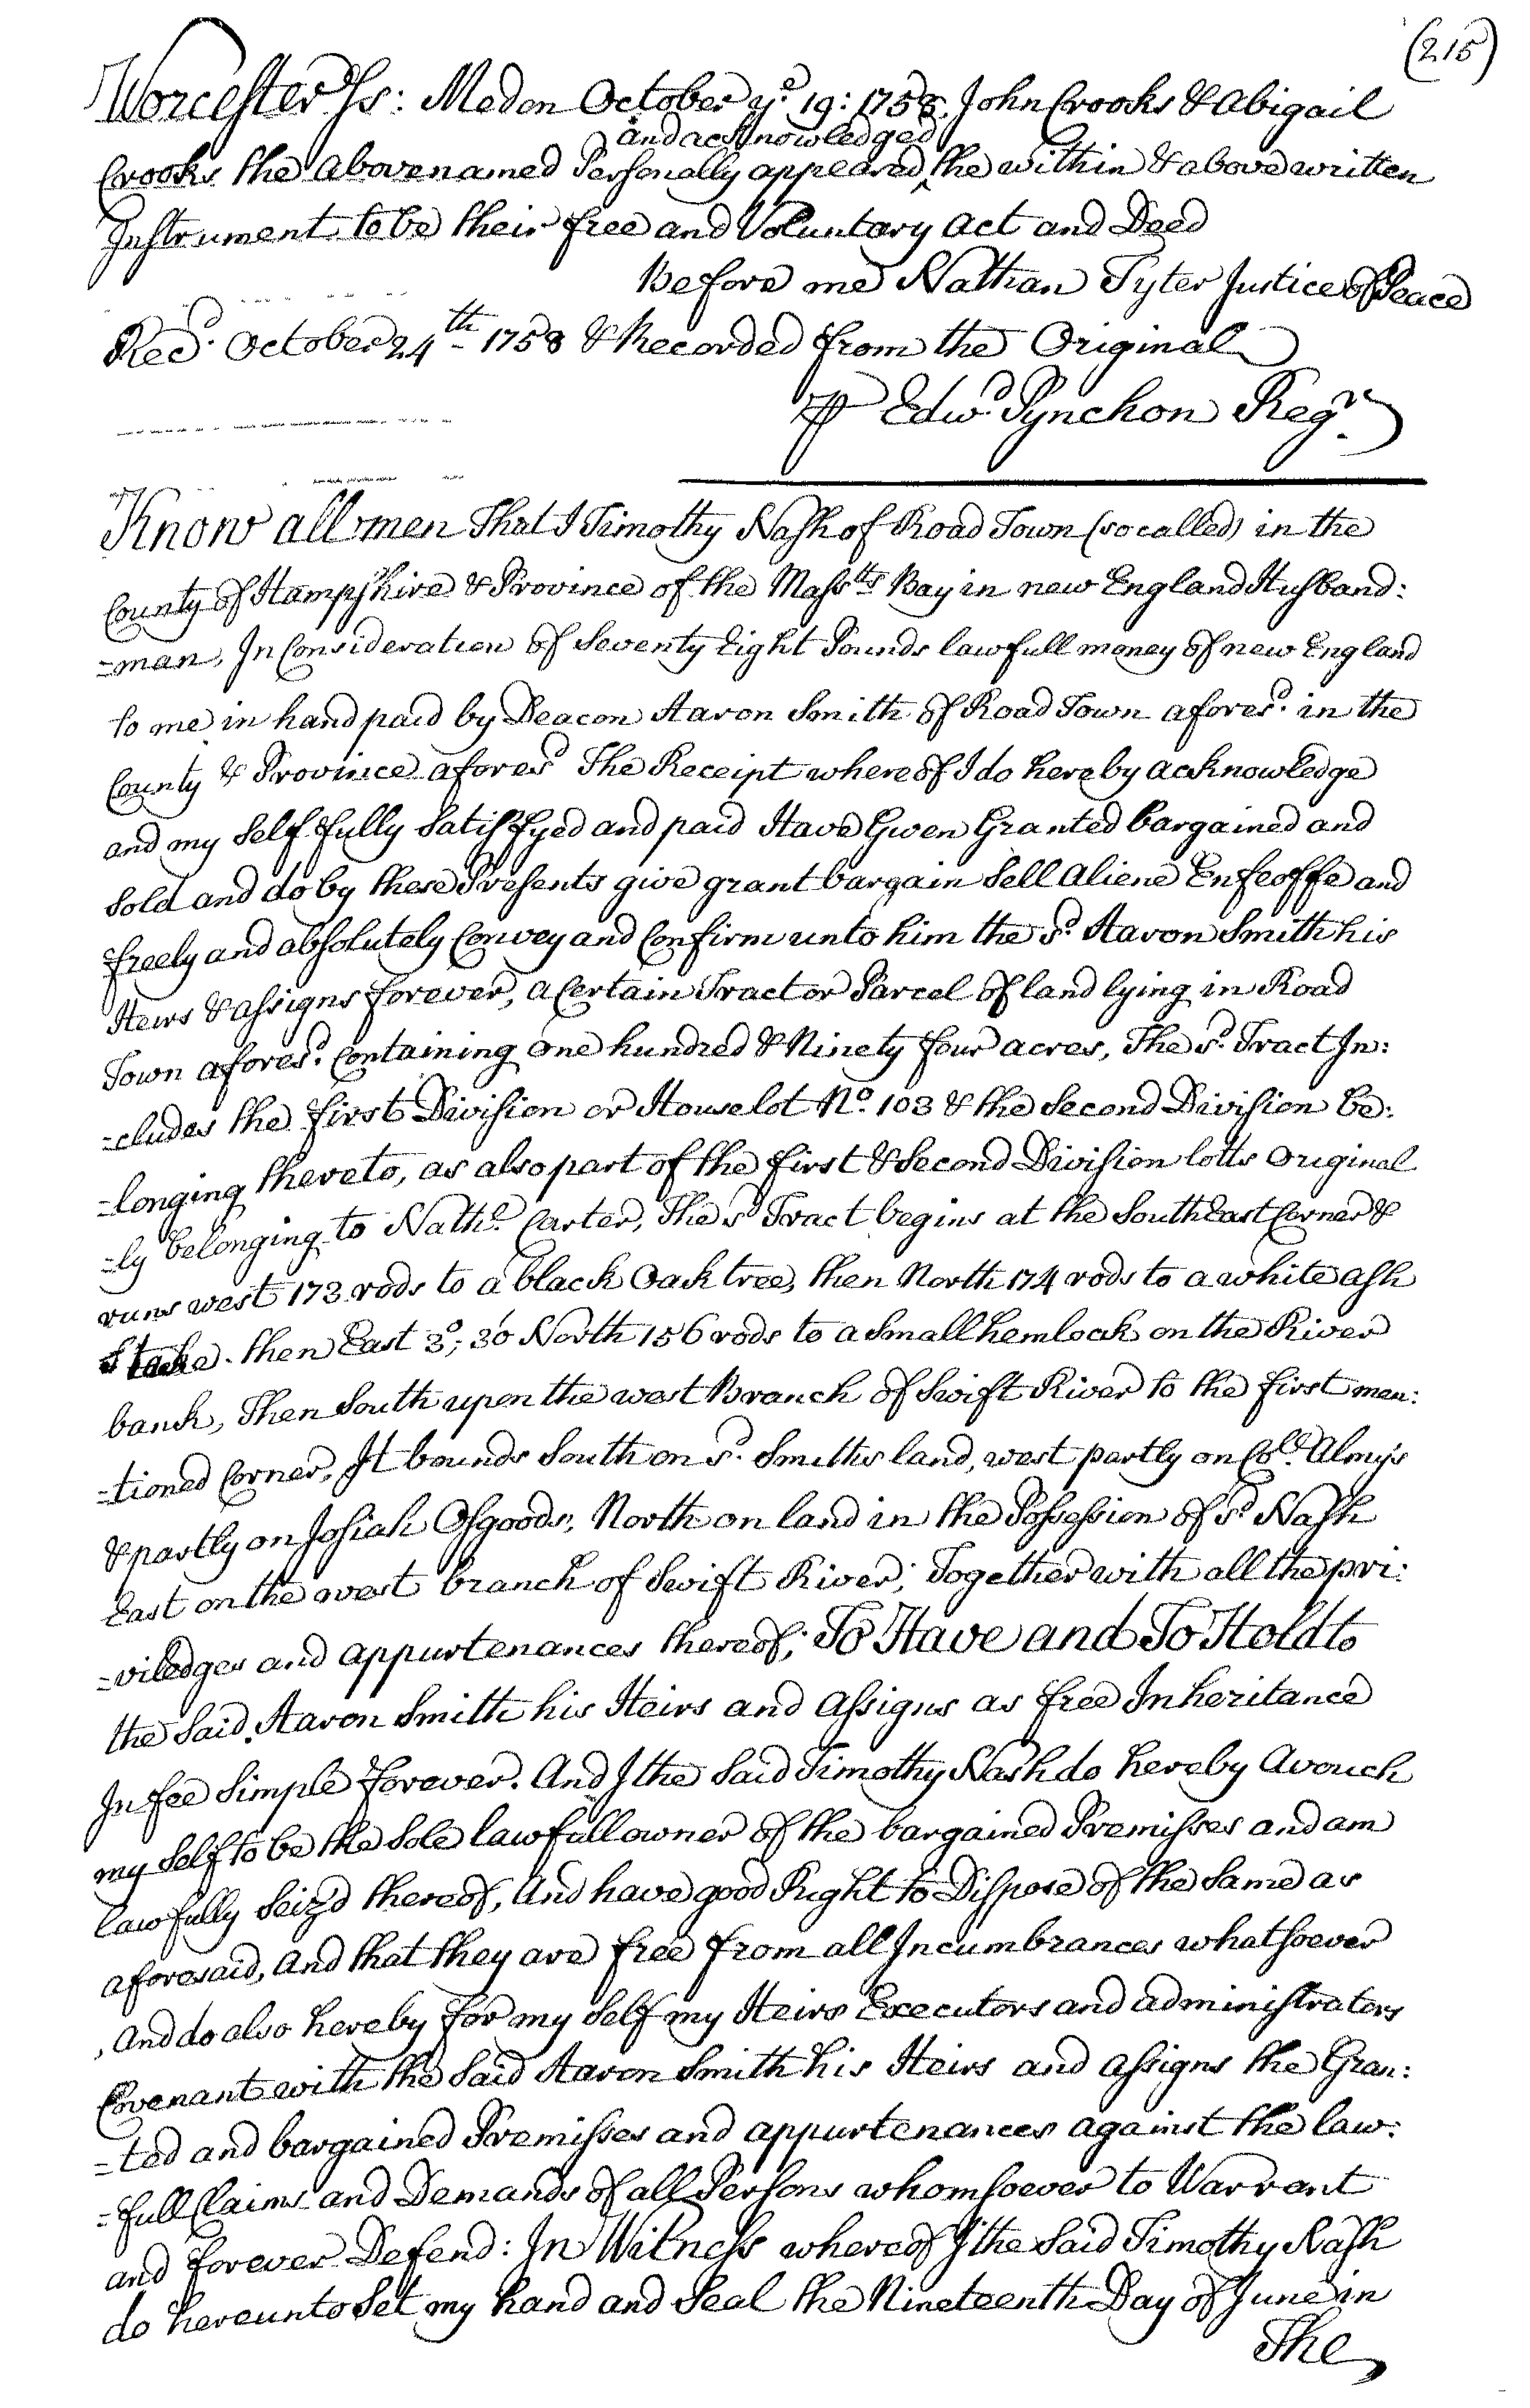 (215)
Worcester Ss: Medon October ye. 19: 1758. John Crooks & Abigail
and acknowledged
Crooks the abovenamed Personally appeared ‸ the within & above written
Instrument to be their free and Voluntary act and Deed
Before me Nathan Tyler Justice of Peace
Recd. October 24th. 1758 & Recorded from the Original
⅌ Edwd. Pynchon Regr.
Know all men That I Timothy Nash of Road Town (so called) in the
County of Hampshire & Province of the Massts Bay in new England Husband:
=man, In Consideration of Seventy Eight Pounds lawfull money of new England
to me in hand paid by Deacon Aaron Smith of Road Town afores.d in the
County & Province aforesd The Receipt whereof I do hereby acknowledge
and my Self fully Satisfyed and paid Have Given Granted bargained and
Sold and do by these Presents give grant bargain Sell aliene Enfeoffe and
freely and absolutely Convey and Confirm unto him the sd. Aaron Smith his
Heirs & assigns forever, a Certain Tract or Parcel of land lying in Road
Town aforesd. Containing one hundred & Ninety four acres, The sd. Tract In:
=cludes the first Division or Houselot No. 103 & the Second Division be:
=longing thereto, as also part of the first & Second Division lotts original
=ly belonging to Nathll. Carter, The sd Tract begins at the South East Corner &
runs west 173 rods to a black Oak tree, then North 174 rods to a white ash
Stake. then East 3°; 30' North 156 rods to a Small hemlock on the River
bank, Then South upon the west Branch of Swift River to the first men:
=tioned Corner, It bounds South on sd. Smiths land, west partly on Coll. Almy's
& partly on Josiah Osgoods; North on land in the Possession of sd Nash
East on the west branch of Swift River; Together with all the pri:
=viledges and appurtenances thereof; To Have and To Hold to
the Said Aaron Smith his Heirs and assigns as free Inheritance
In fee Simple forever. And I the Said Timothy Nash do hereby Avouch
my Self to be the Sole lawfull owner of the bargained Premisses and am
lawfully Seiz'd thereof, And have good Right to Dispose of the Same as
aforesaid, and that they are free from all Incumbrances whatsoever
, And do also hereby for my Self my Heirs Executors and administrators
Covenant with the Said Aaron Smith his Heirs and assigns the Gran:
=ted and bargained Premisses and appurtenances against the law:
=full Claims and Demands of all Persons whomsoever to Warrant
and forever Defend: In Witness whereof I the Said Timothy Nash
do hereunto Set my hand and Seal the Nineteenth Day of June in
The